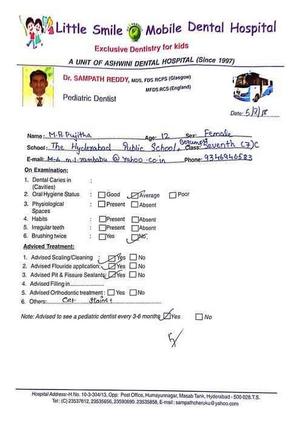 Little Smile Mobile Dental Hospital
Exclusive Dentistry for kids
A UNIT OF ASHWINI DENTAL HOSPITAL (Since 1997)
Dr. SAMPATH REDDY, MDS, FDS RCPS (Glasgow)
MFDS RCS (England)
Pediatric Dentist
Date:
Name: M.R Pujitha Age: 12 Sex: Female
School: The Hyderabad Public School, Class: Seventh (7)C
E-mail: @yahoo.co.in Phone: 9346946583
On Examination:
1. Dental Caries in :
(Cavities)
2. Oral Hygiene Status : Good Average Poor
3. Physiological : Present Absent
Spaces
4. Habits : Present Absent
5. Irregular teeth : Present Absent
6. Brushing twice : Yes No
Adviced Treatment:
1. Advised Scaling/Cleaning : Yes No
2. Advised Flouride application: Yes No
3. Advised Pit & Fissure Sealants: Yes No
4. Advised Filling in
5. Advised Orthodontic treatment : Yes No
6. Others:
Note: Advised to see a pediatric dentist every 3-6 months Yes No
Hospital Address-H.No. 10-3-304/13, Opp: Post Office, Humayunnagar, Masab Tank, Hyderabad - 500 028. T.S.
Tel: (C) 23537612, 23535656, 23590690. 23535858, E-mail : sampathcheruku@yahoo.com